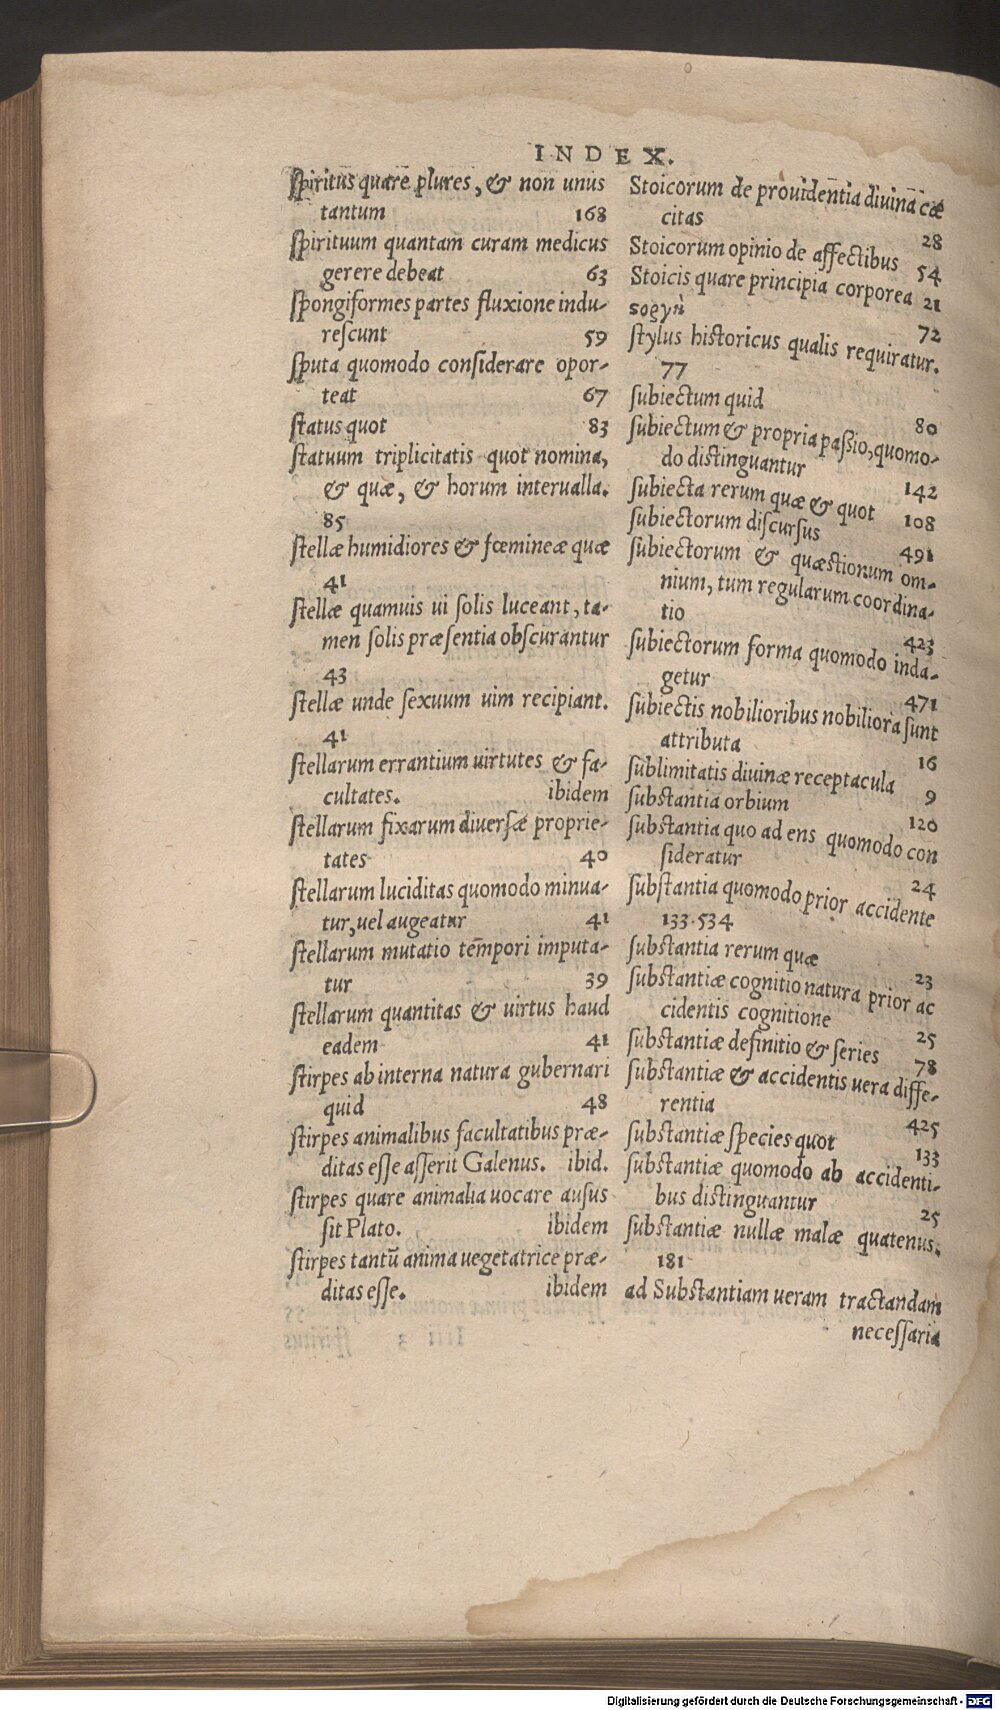 INDEX.
ſpiritus quare plures, & non unus
tantum 168
ſpirituum quantam curam medicus
gerere debeat 63
ſpongiformes partes fluxione indu-
reſcunt 59
ſputa quomodo conſiderare opor-
teat 67
ſtatus quot 83
ſtatuum triplicitatis quot nomina,
& quæ, & horum interualla.
85
ſtellæ humidiores & fœmineæ quæ
41
ſtellæ quamuis ui ſolis luceant, ta-
men ſolis præſentia obſcurantur
43
ſtellæ unde ſexuum uim recipiant.
41
ſtellarum errantium uirtutes & fa-
cultates. ibidem
ſtellarum fixarum diuerſæ proprie-
tates 40
ſtellarum luciditas quomodo minua-
tur, uel augeatur 41
ſtellarum mutatio tempori imputa-
tur 39
ſtellarum quantitas & uirtus haud
eadem 41
ſtirpes ab interna natura gubernari
quid 48
ſtirpes animalibus facultatibus præ-
ditas eſſe aſſerit Galenus. ibid.
ſtirpes quare animalia uocare auſus
ſit Plato. ibidem
ſtirpes tantũ anima uegetatrice præ-
ditas eſſe. ibidem
Stoicorum de prouidentia diuina cæ
citas 28
Stoicorum opinio de affectibus 54
Stoicis quare principia corporea 21
σοργὴ 72
ſtylus hiſtoricus qualis requiratur.
77
ſubiectum quid 80
ſubiectum & propria paßio, quomo-
do diſtinguantur 142
ſubiecta rerum quæ & quot 108
ſubiectorum diſcurſus 491
ſubiectorum & quæſtionum om-
nium, tum regularum coordina-
tio 423
ſubiectorum forma quomodo inda-
getur 471
ſubiectis nobilioribus nobiliora ſunt
attributa 16
ſublimitatis diuinæ receptacula 9
ſubſtantia orbium 120
ſubſtantia quo ad ens quomodo con
ſideratur 24
ſubſtantia quomodo prior accidente
133.534
ſubſtantia rerum quæ 23
ſubſtantiæ cognitio natura prior ac
cidentis cognitione 25
ſubſtantiæ definitio & ſeries 78
ſubſtantiæ & accidentis uera diffe-
rentia 425
ſubſtantiæ ſpecies quot 133
ſubſtantiæ quomodo ab accidenti-
bus diſtinguantur 25
ſubſtantiæ nullæ malæ quatenus.
181
ad Subſtantiam ueram tractandam
neceſſaria
Digitalisierung gefördert durch die Deutsche Forschungsgemeinschaft - DFG